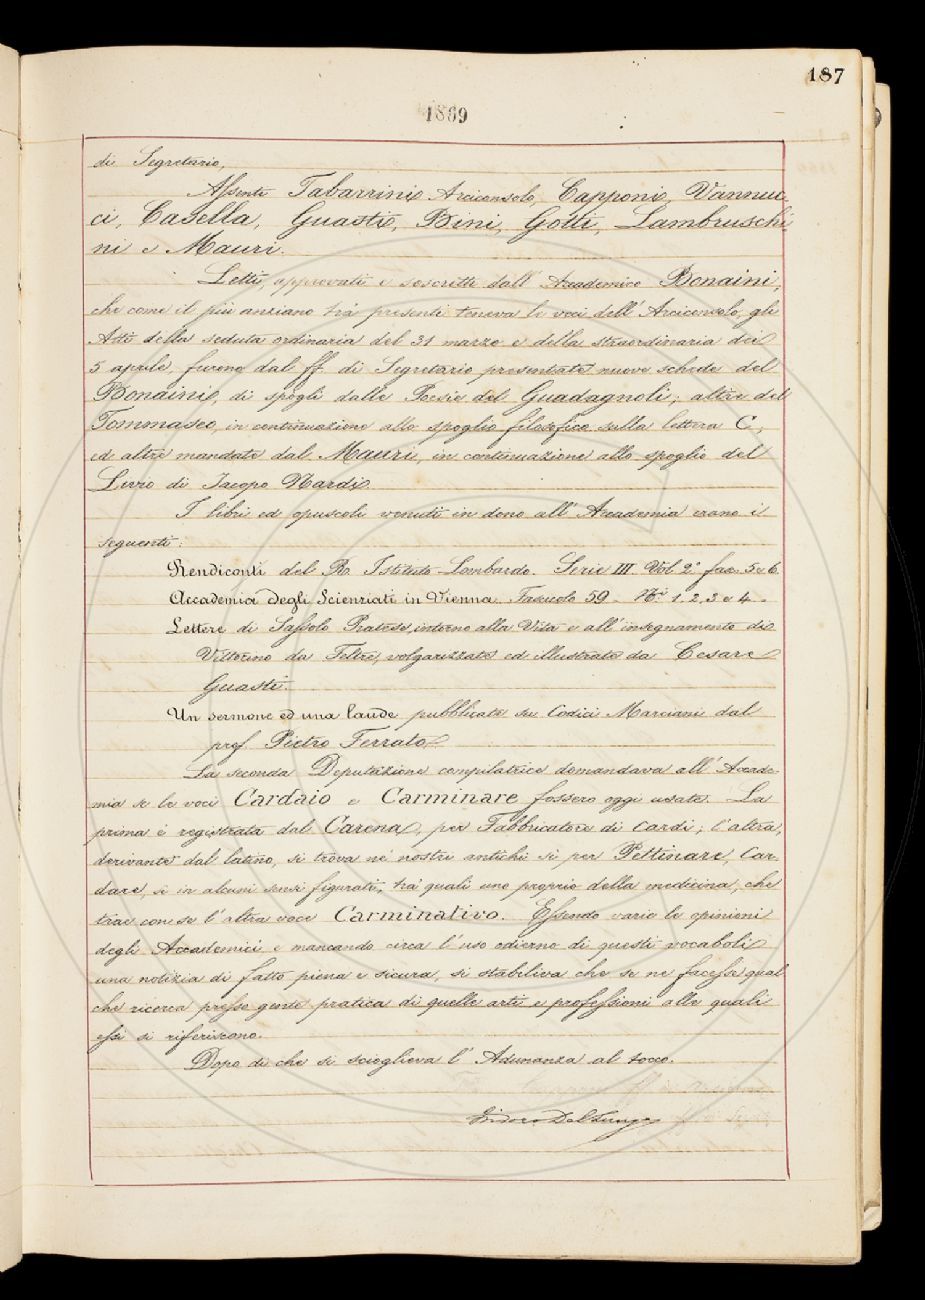 187
1869
di Segretario,
Assente Tabarrini Arciconsolo, Capponi, Vannuc-
ci, Casella, Guasti, Bini, Gotti, Lambruschi-
ni e Mauri.
Letti, approvati e soscritti dall' Accademico Bonaini,
che come il più anziano trà presenti teneva le veci dell' Arciconsolo, gli
Atti della seduta ordinaria del 31 marzo e della straordinaria dei
5 aprile, furono dal ff. di Segretario presentate nuove schede del
Bonaini, di spogli dalle Poesie del Guadagnoli; altre del
Tommaseo, in continuazione allo spoglio filosofico sulla lettera C;
ed altre mandate dal Mauri, in continuazione allo spoglio del
Livio di Jacopo Nardi.
I libri ed opuscoli venuti in dono all' Accademia erano i
seguenti:
Rendiconti del R. Istituto Lombardo. Serie III. Vol. 2° fasc. 5 e 6.
Accademia degli Scienziati in Vienna. Fascicolo 59. Nⁱ. 1. 2. 3 e 4.
Lettere di Sassolo Pratese, intorno alla Vita e all' insegnamento di
Vittorino da Feltre, volgarizzate ed illustrate da Cesare
Guasti.
Un sermone ed una laude pubblicate su Codici Marciani dal
prof. Pietro Ferrato
La seconda Deputazione compilatrice domandava all' Accade-
mia se le voci Cardaio e Carminare fossero oggi usate. La
prima è registrata dal Carena, per Fabbricatore di cardi; l'altra,
derivante dal latino, si trova ne' nostri antichi sì per Pettinare, Car-
dare, sì in alcuni sensi figurati, trà quali uno proprio della medicina, che
trae con se l'altra voce Carminativo. Essendo varie le opinioni
degli Accademici e mancando circa l'uso odierno di questi vocaboli
una notizia di fatto piena e sicura, si stabiliva che se ne facesse qual
che ricerca presso gente pratica di quelle arti e professioni alle quali
essi si riferiscono.
Dopo di che si scioglieva l' Adunanza al tocco.
Isidoro Del Lungo